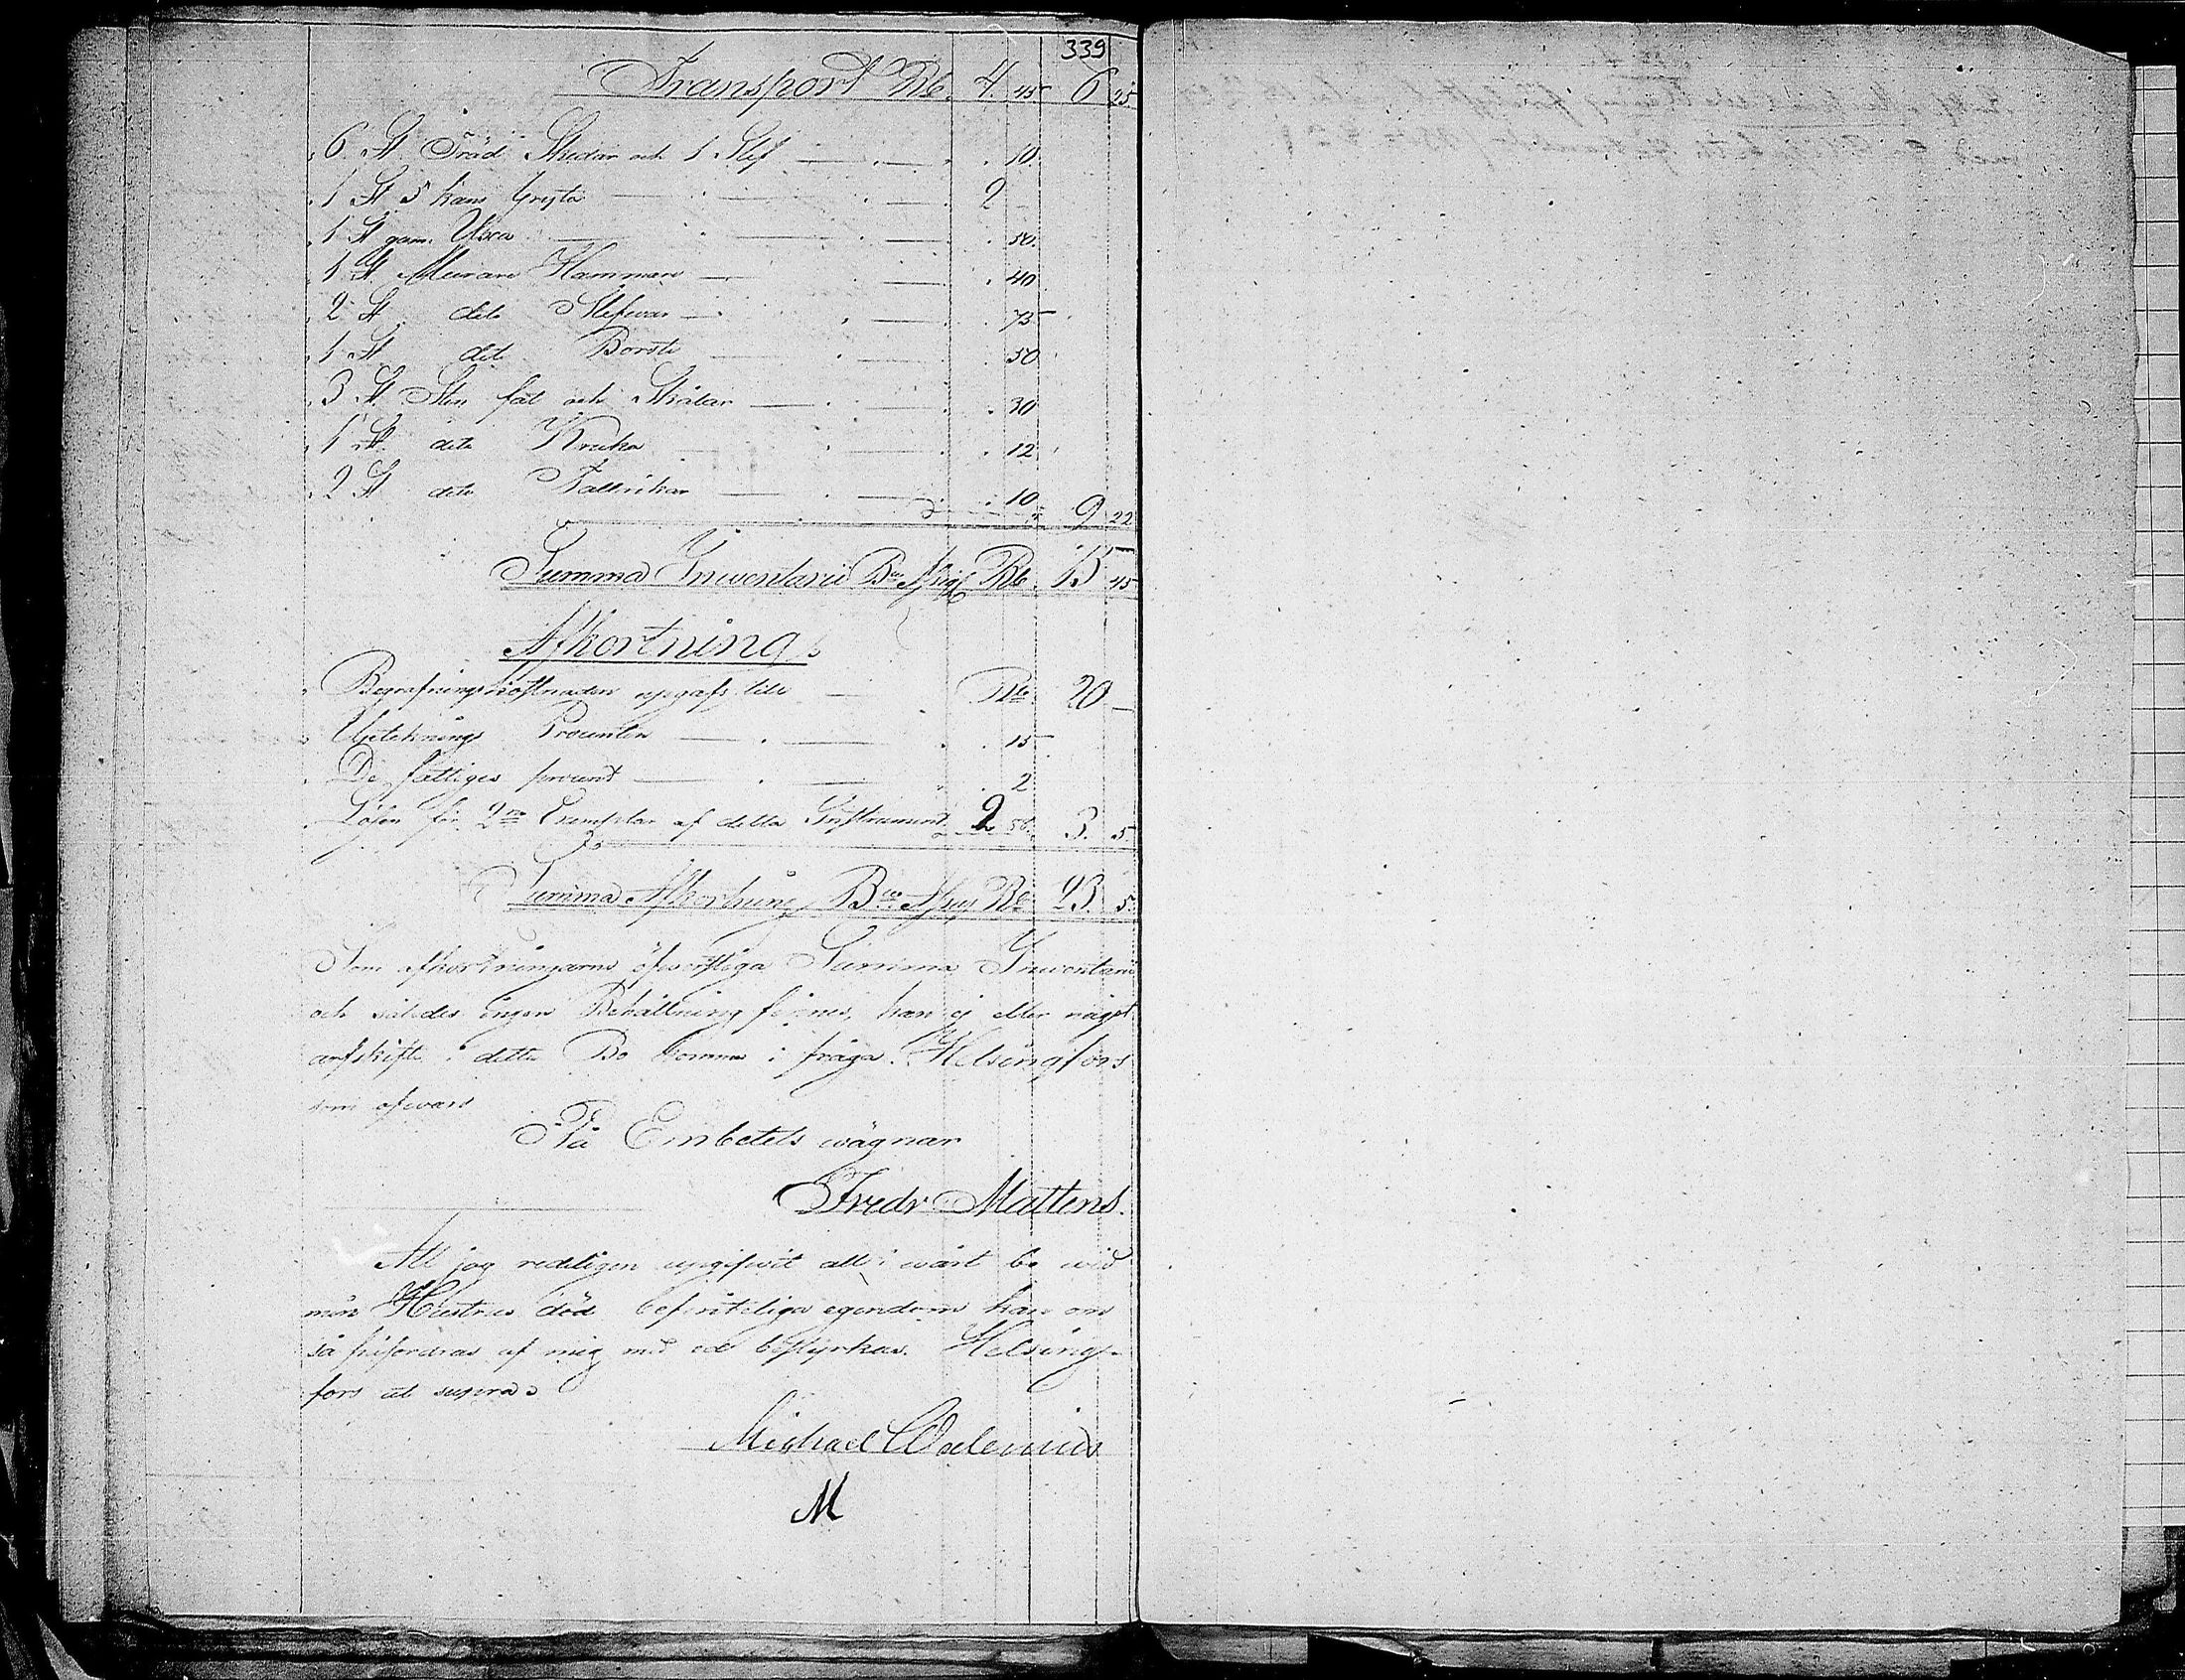 339
Transport Rb. 4. 45 6 25
6 St Träd Skedar och 1 Slef 10
1 St 5 kans Gryta 2 -
1 St gam. 50
1 St Murare Hammare 40
2 St dito Slefwar 75
1 St dito Borste 50
3 St Sten fat och Skålar 30
1 St dito Kruka 12
2 St dito Tallrikar 10 9 22
Summa Inventarii Bco Assig Rb. 15 45
Afkortning
Begrafningskostnaden upgafs till Rb 20 —
Upteknings Procenten 15
De fattiges procent 2
Lösen för 2ne Exemplar af detta Instrument 2 50 3. 5.
Summa Afkortning Bco Assig Rb 23. 5.
Som afkortningarne öfwerstiga Summa Inventarii
och således ingen Behållning finnes, kan ej eller något
arfskifte i detta Bo komma i fråga. Helsingfors
som ofwan
På Embetets wägnar
Fredr Mattens.
Att jag redeligen upgifwit allt i wårt bo wid
min Hustrus död befinteliga egendom kan om
så fordras af mig med ed bestyrkas. Helsing-
fors ut supra
Michael Walenius
M